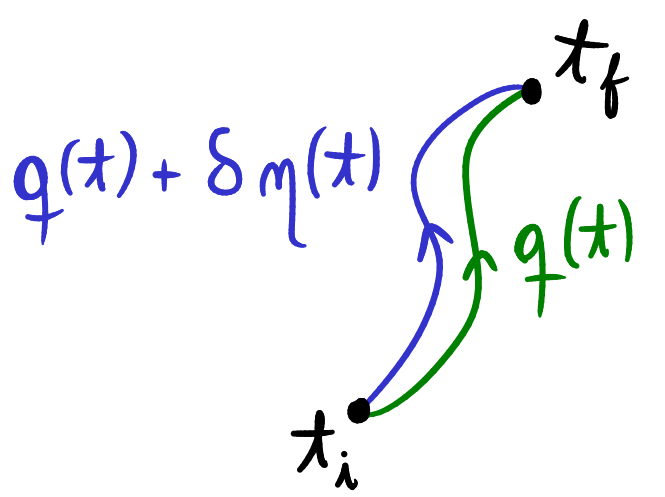 t_f
q(t) + δη(t)
q(t)
t_i